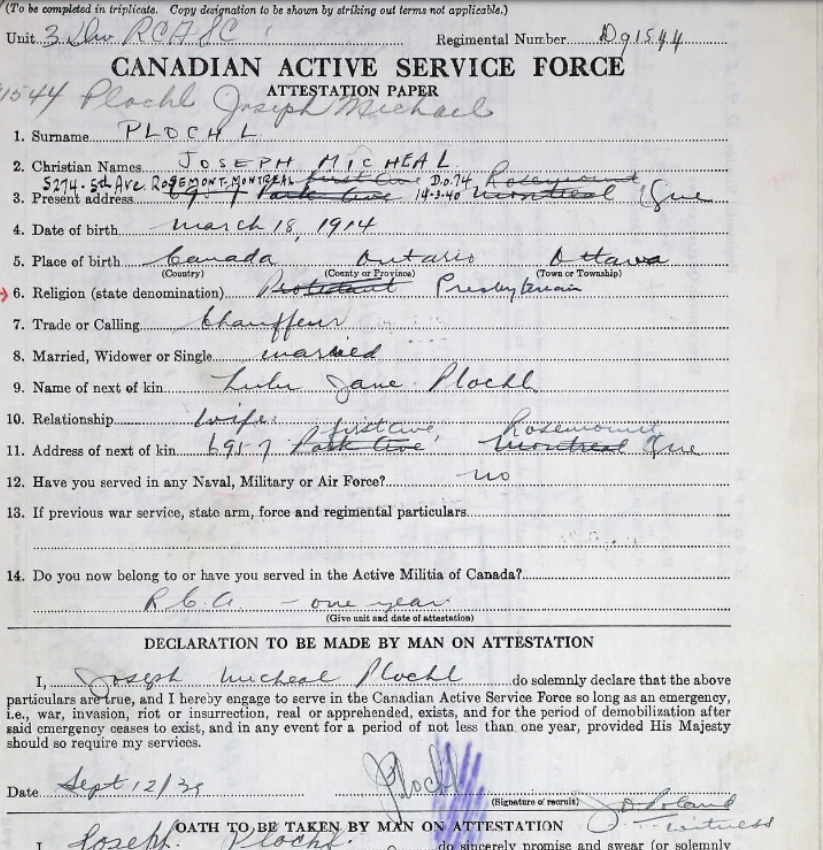 (To be completed in triplicate. Copy designation to be shown by striking out terms not applicable.)
Unit 3 Div RCASC Regimental Number D91544
CANADIAN ACTIVE SERVICE FORCE
ATTESTATION PAPER
91544 Plochl Joseph Michael
1. Surname PLOCHL
2. Christian Names JOSEPH MICHEAL
5274-5th Ave. ROSEMONT-MONTREAL first ave D.O.74 Rosemount
3. Present address 6957 Park Ave 14-3-40 Montreal Que
4. Date of birth march 18, 1914
5. Place of birth Canada Ontario Ottawa
(Country) (County or Province) (Town or Township)
6. Religion (state denomination) Protestant Presbyterian
7. Trade or Calling Chauffeur
8. Married, Widower or Single married
9. Name of next of kin Lulu Jane Plochl
10. Relationship wife
first ave, Rosemount
11. Address of next of kin 6957 Park Ave, Montreal Que
12. Have you served in any Naval, Military or Air Force? no
13. If previous war service, state arm, force and regimental particulars
14. Do you now belong to or have you served in the Active Militia of Canada?
R.C.A. - one year
(Give unit and date of attestation)
DECLARATION TO BE MADE BY MAN ON ATTESTATION
I, Joseph Micheal Plochl do solemnly declare that the above
particulars are true, and I hereby engage to serve in the Canadian Active Service Force so long as an emergency,
i.e., war, invasion, riot or insurrection, real or apprehended, exists, and for the period of demobilization after
said emergency ceases to exist, and in any event for a period of not less than one year, provided His Majesty
should so require my services.
Date Sept 12/39 J Plochl
(Signature of recruit)
OATH TO BE TAKEN BY MAN ON ATTESTATION Witness
I Joseph Plochl do sincerely promise and swear (or solemnly